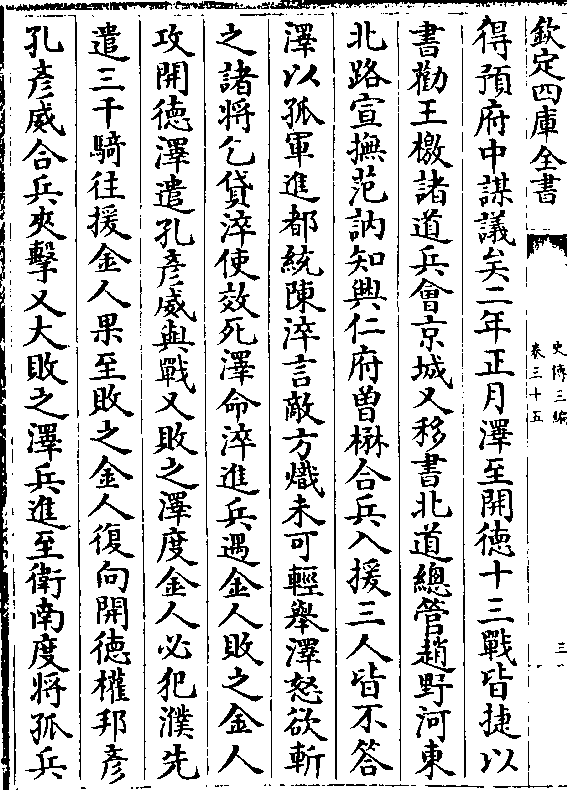 欽定四庫全書
史傳三編
卷三十五
三
得預府中謀議矣二年正月澤至開徳十三戰皆捷以
書勸王檄諸道兵會京城又移書北道總管趙野河東
北路宣撫范訥知興仁府曾楙合兵入援三人皆不答
澤以孤軍進都統陳淬言敵方熾未可輕舉澤怒欲斬
之諸將乞貸淬使效死澤命淬進兵遇金人敗之金人
攻開徳澤遣孔彥威與戰又敗之澤度金人必犯濮先
遣三千騎往援金人果至敗之金人復向開徳權邦彥
孔彥威合兵夾擊又大敗之澤兵進至衛南度將孤兵